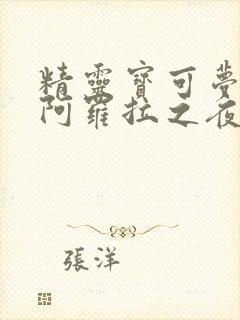 精靈寶可夢
阿羅拉之夜
張洋